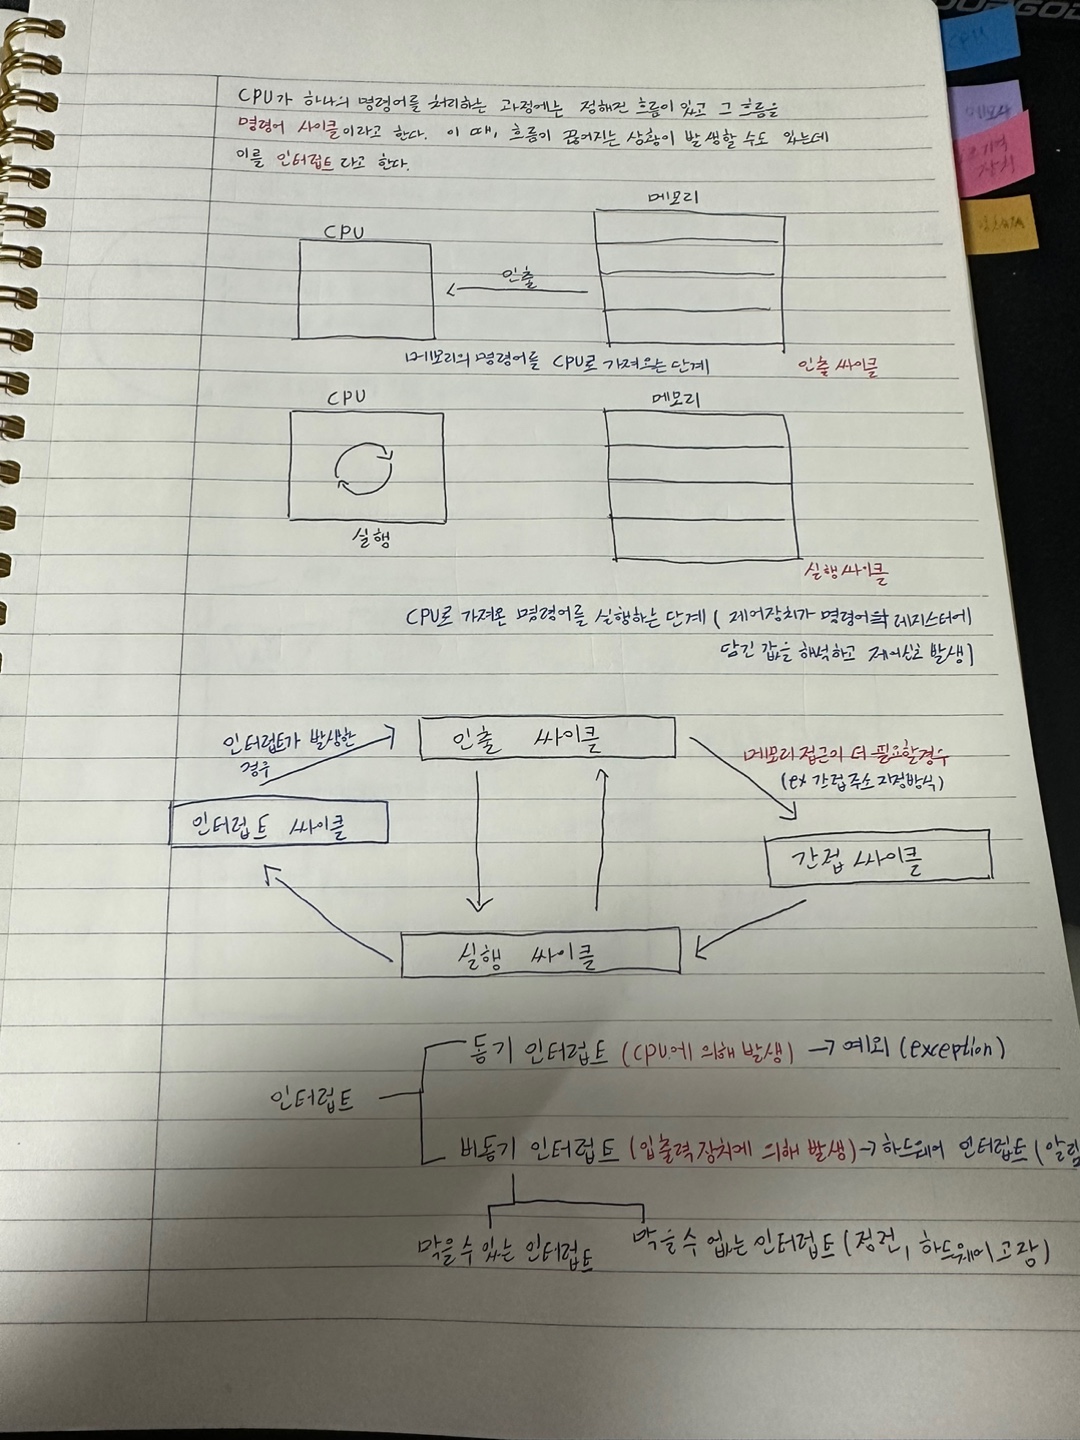 CPU가 하나의 명령어를 처리하는 과정에는 정해진 흐름이 있고 그 흐름을
명령어 사이클이라고 한다. 이 때, 흐름이 끊어지는 상황이 발생할 수도 있는데
이를 인터럽트 라고 한다.
CPU
메모리
인출
메모리의 명령어를 CPU로 가져오는 단계
인출 싸이클
CPU
메모리
실행
실행 싸이클
CPU로 가져온 명령어를 실행하는 단계 ( 제어장치가 명령어 레지스터에
담긴 값을 해석하고 제어신호 발생)
인터럽트가 발생한
경우
인출 싸이클
메모리 접근이 더 필요할경우
(ex 간접 주소 지정방식)
인터럽트 싸이클
간접 싸이클
실행 싸이클
인터럽트
동기 인터럽트 (CPU에 의해 발생) → 예외 (exception)
비동기 인터럽트 (입출력장치에 의해 발생) → 하드웨어 인터럽트 (알림
막을 수 있는 인터럽트
막을 수 없는 인터럽트 (정전, 하드웨어 고장)
CPU
메모리
장치